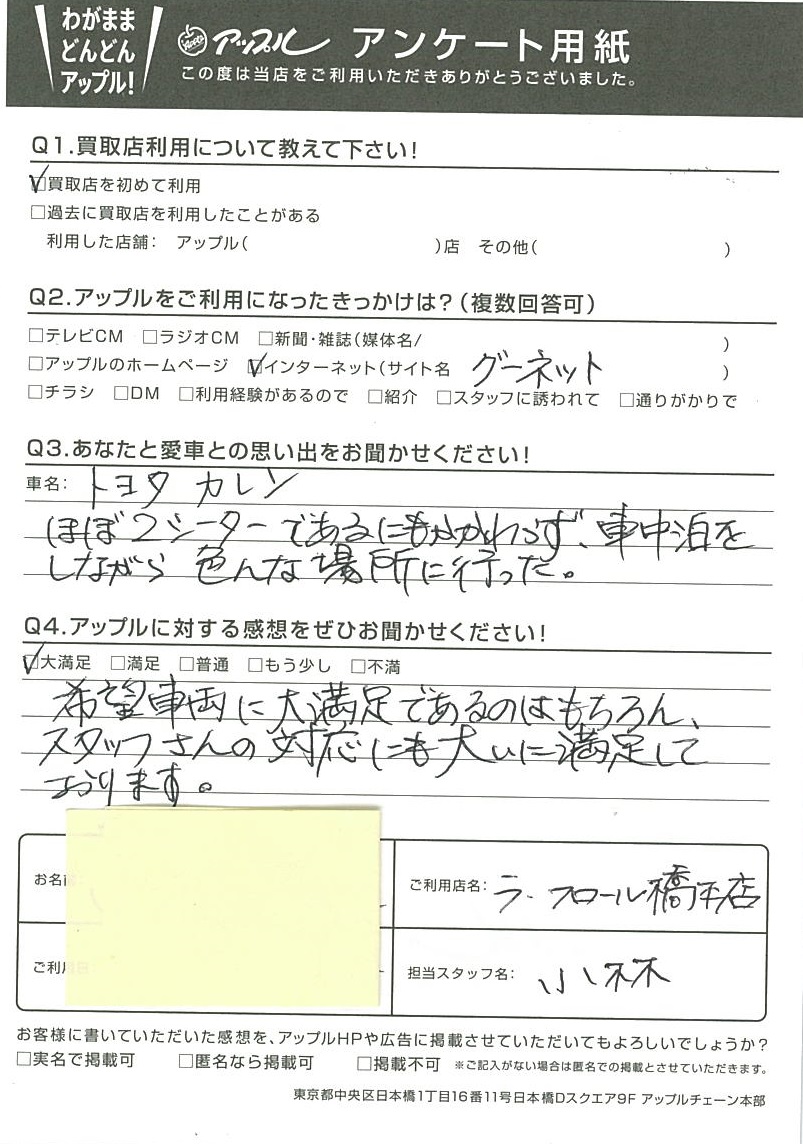 わがまま
どんどん
アップル!
アップル アンケート用紙
この度は当店をご利用いただきありがとうございました。
Q1.買取店利用について教えて下さい!
☑買取店を初めて利用
□過去に買取店を利用したことがある
利用した店舗: アップル( )店 その他( )
Q2.アップルをご利用になったきっかけは?(複数回答可)
□テレビCM □ラジオCM □新聞・雑誌(媒体名/ )
□アップルのホームページ ☑インターネット(サイト名 グーネット )
□チラシ □DM □利用経験があるので □紹介 □スタッフに誘われて □通りがかりで
Q3.あなたと愛車との思い出をお聞かせください!
車名: トヨタ カレン
ほぼ2シーターであるにもかかわらず、車中泊を
しながら 色んな場所に行った。
Q4.アップルに対する感想をぜひお聞かせください!
☑大満足 □満足 □普通 □もう少し □不満
希望車両に大満足であるのはもちろん、
スタッフさんの対応にも大いに満足して
おります。
お名前
ご利用店名: ラ・フロール橋本店
ご利用日
担当スタッフ名: 小林
お客様に書いていただいた感想を、アップルHPや広告に掲載させていただいてもよろしいでしょうか?
□実名で掲載可 □匿名なら掲載可 □掲載不可 ※ご記入がない場合は匿名での掲載とさせていただきます。
東京都中央区日本橋1丁目16番11号日本橋Dスクエア9F アップルチェーン本部